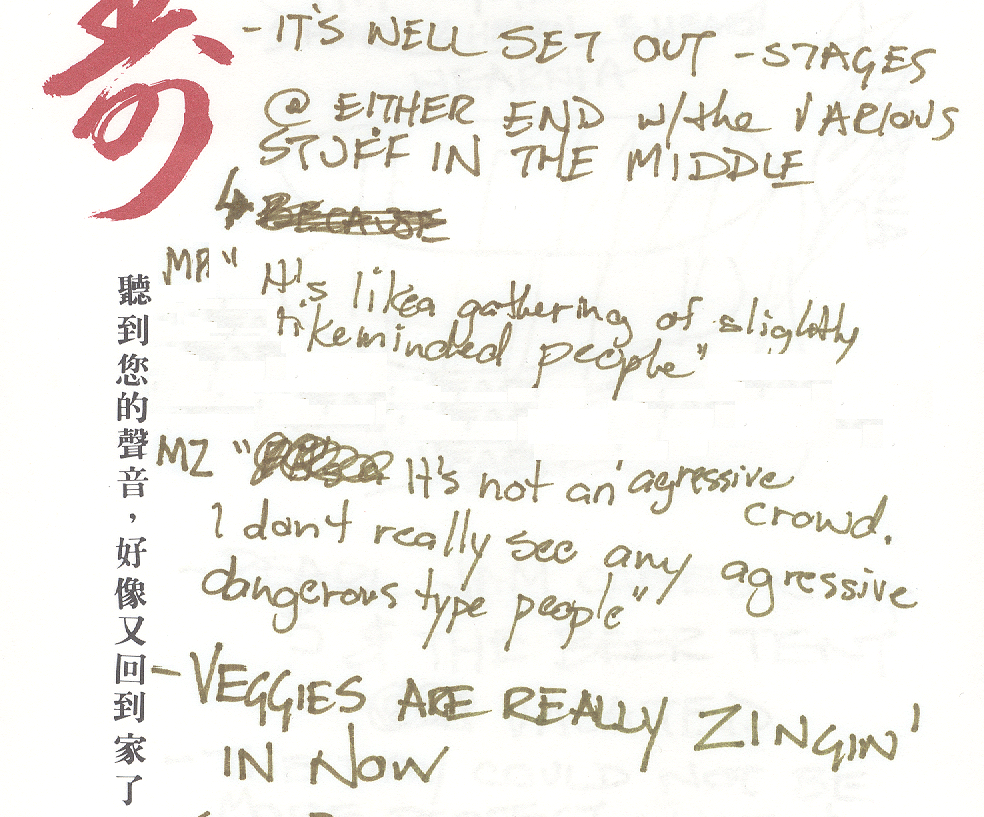 -IT'S WELL SET OUT -STAGES
@ EITHER END w/the VARIOUS
STUFF IN THE MIDDLE
BECAUSE
MA " It's like a gathering of slightly
likeminded people"
MZ " It's not an agressive
crowd.
I don't really see any agressive
dangerous type people"
- VEGGIES ARE REALLY ZINGIN'
IN NOW
聽到您的聲音，好像又回到家了